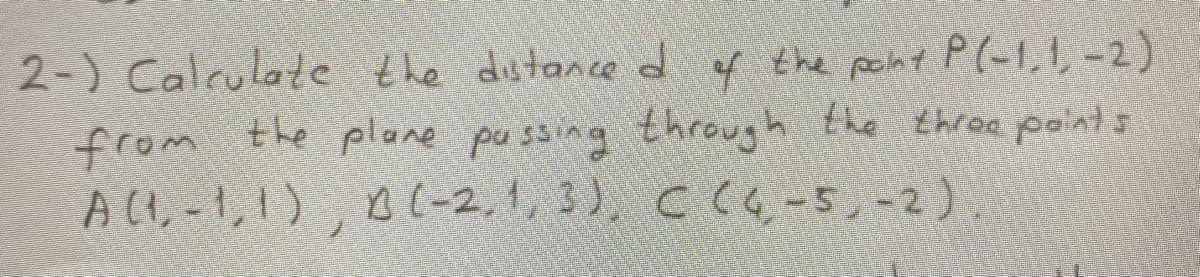 2-) Calculate the distance d of the point P(-1,1,-2)
from the plane passing through the three points
A(1,-1,1), B(-2,1,3), C(4,-5,-2).